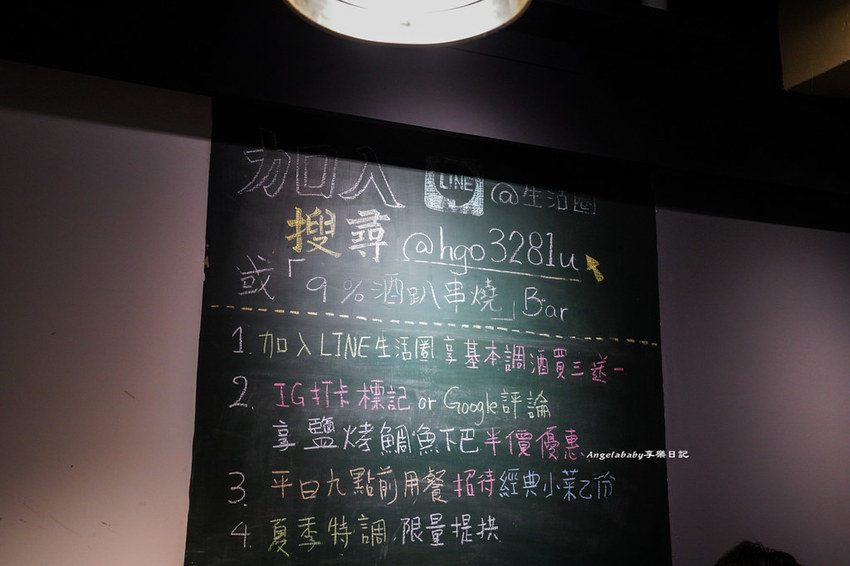 加入 LINE @生活圈
搜尋 @hgo3281u
或「9%酒趴串燒」Bar
1. 加入LINE生活圈享基本調酒買三送一
2. IG打卡標記 or Google評論
享 鹽烤鯛魚下巴半價優惠
Angelababy享樂日記
3. 平日九點前用餐招待經典小菜乙份
4. 夏季特調 限量提拱